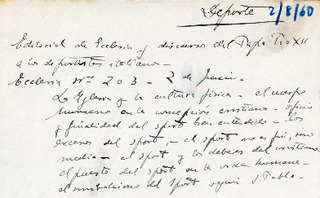 Deporte 2/8/60
Editorial de Ecclesia y discurso del Papa Pio XII
a los deportistas italianos —
Ecclesia Nº 203 — 2 de Junio.
La Iglesia y la cultura física — el cuerpo
humano en la concepción cristiana — oficio
y finalidad del sport bien entendido — los
excesos del sport, — el sport no es fin, sino
medio — el sport y los deberes del cristiano,
el puesto del sport en la vida humana —
el simbolismo del sport según S. Pablo. —